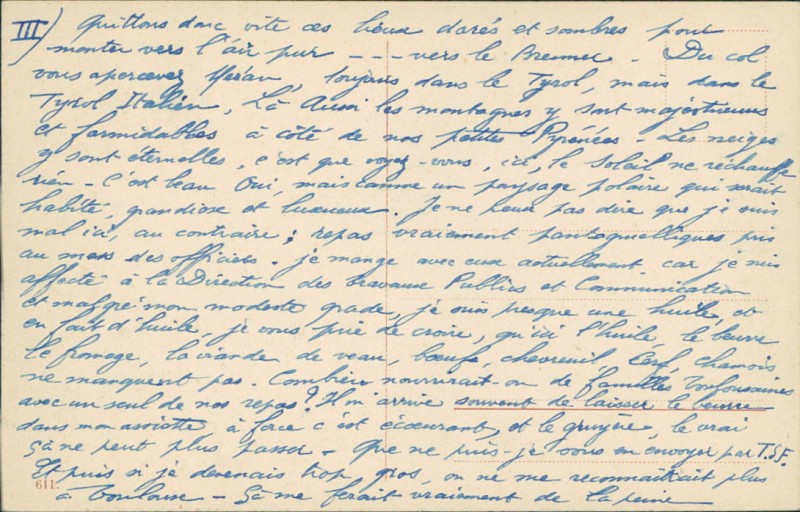 III) Quittons donc vite ces lieux dorés et sombres pour
monter vers l'air pur --- vers le Brenner - Du col
vous apercevez Méran, toujours dans le Tyrol, mais dans le
Tyrol Italien, Là Aussi les montagnes y sont majestueuses
et formidables à côté de nos petites Pyrénées - Les neiges
y sont éternelles, c'est que voyez-vous, ici, le Soleil ne réchauffe
rien - C'est beau Oui, mais comme un paysage polaire qui serait
habité, grandiose et luxueux. Je ne peux pas dire que je suis
mal ici, au contraire; repas vraiment pantagruelliques pris
au mess des officiers. je mange avec eux actuellement car je suis
affecté à la Direction des travaux Publics et Communication
et malgré mon modeste grade, je suis presque une huile, et
en fait d'huile, je vous prie de croire, qu'ici l'huile, le beurre
le fromage, la viande de veau, bœufs, chevreuil, Cerf, chamois
ne manquent pas. Combien nourrirait-on de familles Toulousaines
avec un seul de nos repas? Il m'arrive souvent de laisser le beurre
dans mon assiette à force c'est écœurant, et le gruyère, le vrai
çà ne peut plus passer - Que ne puis-je vous en envoyer par T.S.F.
Et puis si je devenais trop gros, on ne me reconnaîtrait plus
à Toulouse - Çà me ferait vraiment de la peine
611.